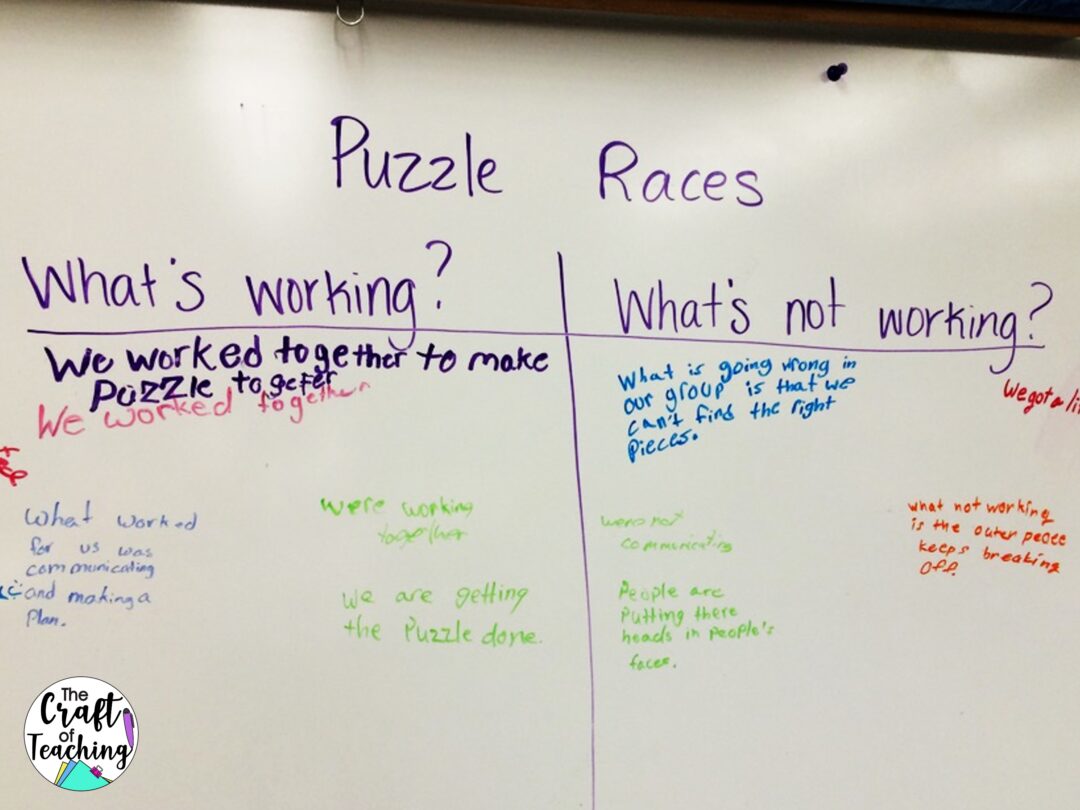 Puzzle Races
What's working?
We worked together to make
puzzle togeter
We worked together
What worked
for us was
communicating
and making a
plan.
were working
together
we are getting
the Puzzle done.
What's not working?
What is going wrong in
our group is that we
can't find the right
pieces.
We got a
were not
communicating
People are
Putting there
heads in people's
faces.
what not working
is the outer peace
keeps breaking
off.
The
Craft
of
Teaching